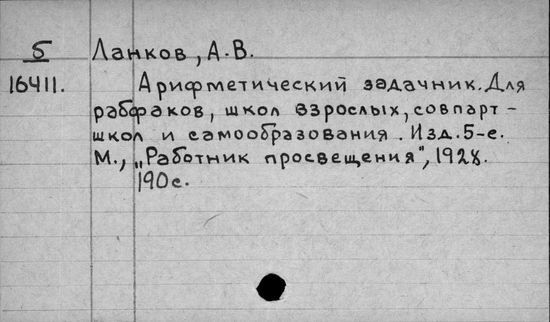 5
16411.
Ланков, А.В.
Арифметический задачник. Для
рабфаков, школ взрослых, совпарт-
школ и самообразования. Изд. 5-е.
М., „Работник просвещения", 1928.
190с.